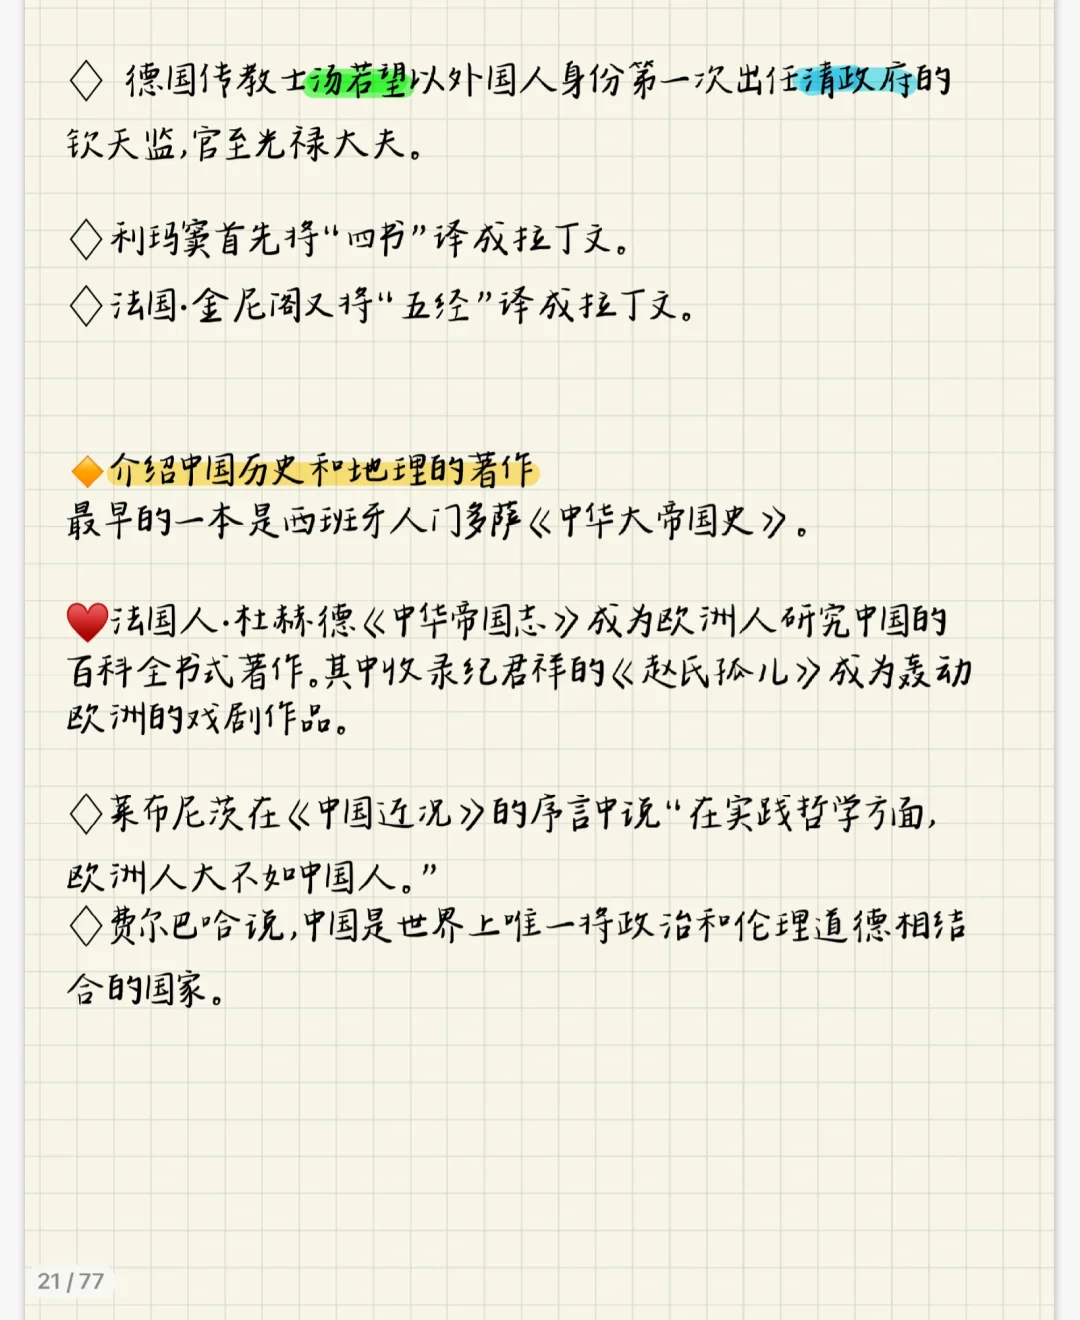 ◇ 德国传教士汤若望以外国人身份第一次出任清政府的
钦天监,官至光禄大夫。
◇利玛窦首先将“四书”译成拉丁文。
◇法国·金尼阁又将“五经”译成拉丁文。
🔶介绍中国历史和地理的著作
最早的一本是西班牙人门多萨《中华大帝国史》。
♥️法国人·杜赫德《中华帝国志》成为欧洲人研究中国的
百科全书式著作。其中收录纪君祥的《赵氏孤儿》成为轰动
欧洲的戏剧作品。
◇莱布尼茨在《中国近况》的序言中说“在实践哲学方面,
欧洲人大不如中国人。”
◇费尔巴哈说,中国是世界上唯一将政治和伦理道德相结
合的国家。
21/77